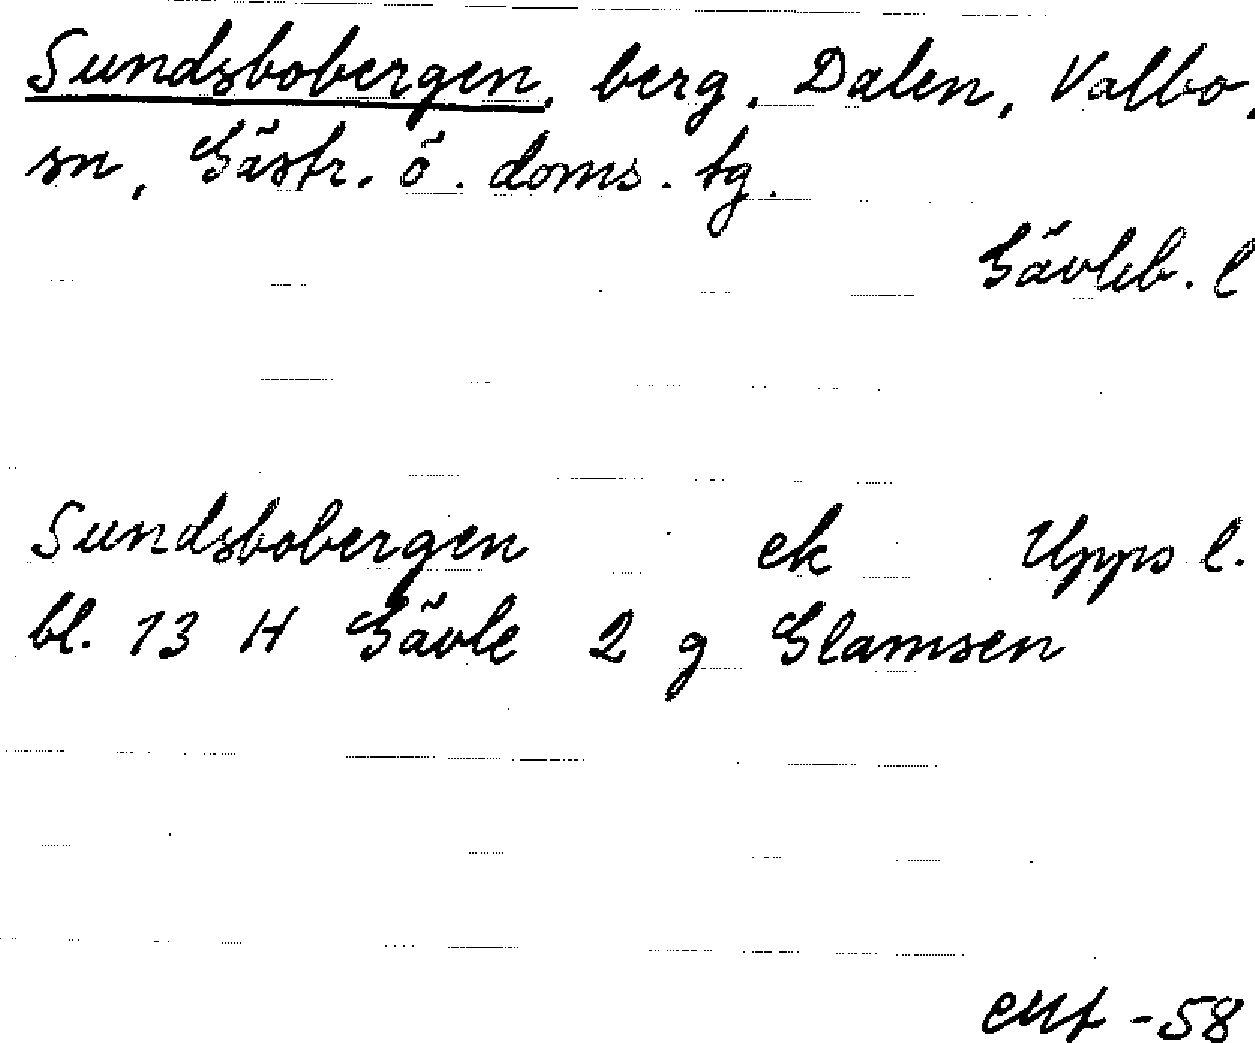 Sundsbobergen, berg, Dalen, Valbo,
sn, Gästr. ö. doms. tg.
Gävleb. l
Sundsbobergen ek Upps l.
bl. 13 H Gävle 2 g Glamsen
-58